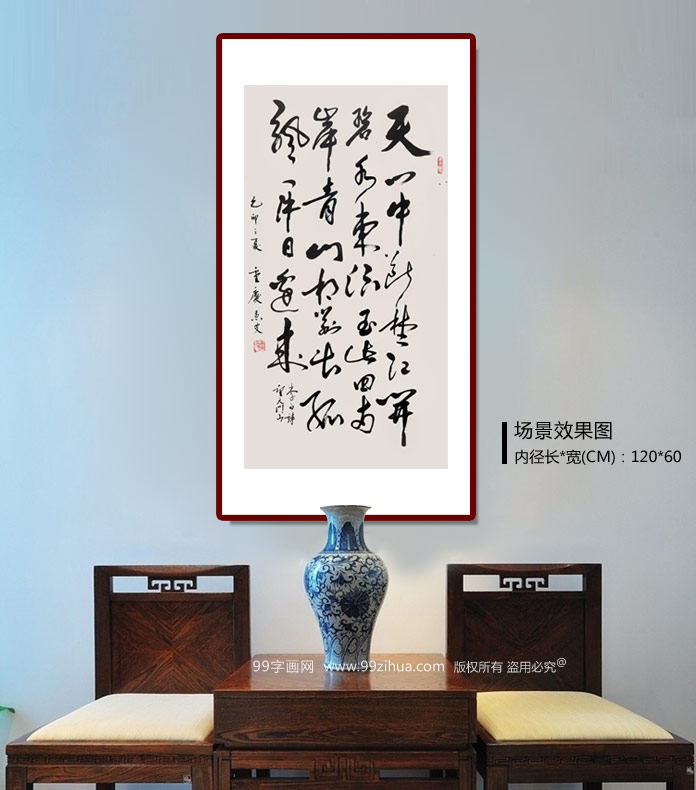 天门中断楚江開
碧水東流至此回両
岸青山相對出孤
颿一片日邊來
李白詩
望天门山
己卯之夏 重慶
场景效果图
内径长*宽(CM)：120*60
99字画网 www.99zihua.com 版权所有 盗用必究@